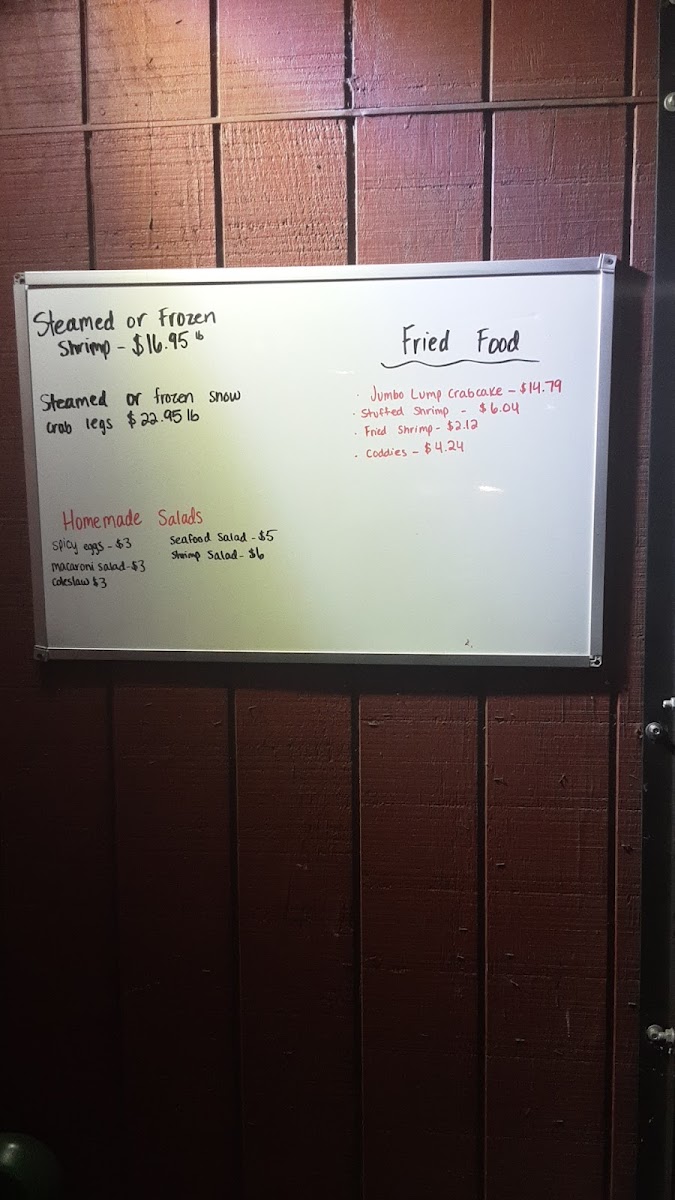 Steamed or Frozen
Shrimp - $16.95 lb
Steamed or frozen snow
crab legs $22.95 lb
Homemade Salads
spicy eggs - $3
macaroni salad - $3
coleslaw $3
seafood salad - $5
shrimp salad - $6
Fried Food
· Jumbo Lump Crabcake - $14.79
· Stuffed Shrimp - $6.04
· Fried Shrimp - $2.12
· Coddies - $4.24